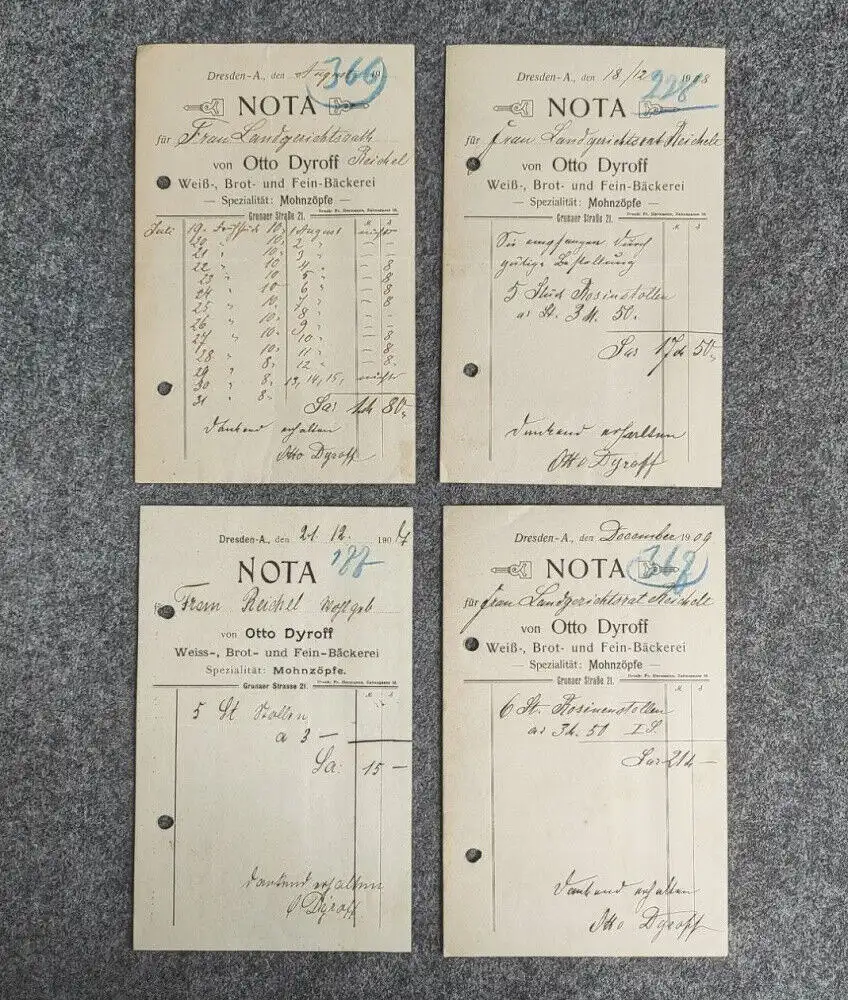 Dresden-A., den August 19
366
NOTA
für Frau Landgerichtsrath
von Otto Dyroff Reichel
Weiß-, Brot- und Fein-Bäckerei
— Spezialität: Mohnzöpfe —
Grunaer Straße 21.
M ₰
Juli 19. Frühstück 10, 1 August nichts
20 " 10, 2 " — —
21 " 10, 3 " — —
22 " 10 4 " — 8
23 " 10, 5 " — 8
24 " 10 6 " — 8
25 " 10, 7 " — 8
26 " 10, 8 "
27 " 10, 9 " — 8
28 " 10, 10 " — 8
29 " 8, 11 " — 8
30 " 8, 12 "
31 " 8, 13, 14, 15, nichts
Sa: 1 M 80
dankend erhalten
Otto Dyroff
Dresden-A., den 18/12 1908
228
NOTA
für Frau Landgerichtsrat Reichelt
von Otto Dyroff
Weiß-, Brot- und Fein-Bäckerei
— Spezialität: Mohnzöpfe —
Grunaer Straße 21.
M ₰
Sie empfangen durch
gütige Bestellung
5 Stück Rosinstollen
a: St. 3 M. 50.
Sa: 17 M 50
dankend erhalten
Otto Dyroff
Dresden-A., den 21. 12. 1907
187
NOTA
für Frau Reichel Wohlgeb
von Otto Dyroff
Weiss-, Brot- und Fein-Bäckerei
Spezialität: Mohnzöpfe.
Grunaer Strasse 21.
M ₰
5 St Stollen
a 3 —
Sa: 15 —
dankend erhalten
O Dyroff
Dresden-A., den December 1909
NOTA
für Frau Landgerichtsrat Reichelt
von Otto Dyroff
Weiß-, Brot- und Fein-Bäckerei
— Spezialität: Mohnzöpfe —
Grunaer Straße 21.
M ₰
6 St. Rosinenstollen
a: 3 M. 50 I S.
Sa: 21 M —
dankend erhalten
Otto Dyroff